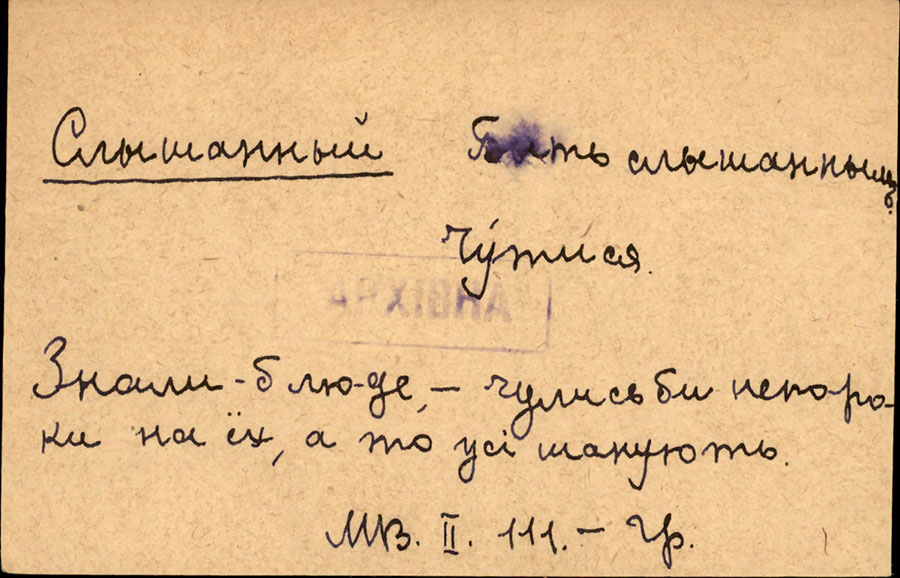 Слышанный Быть слышанным.
Чу́тися.
Знали-б люде, – чулись би непоро-
ки на їх, а то усі шанують.
МВ. II. 111. – Гр.
АРХІВНА